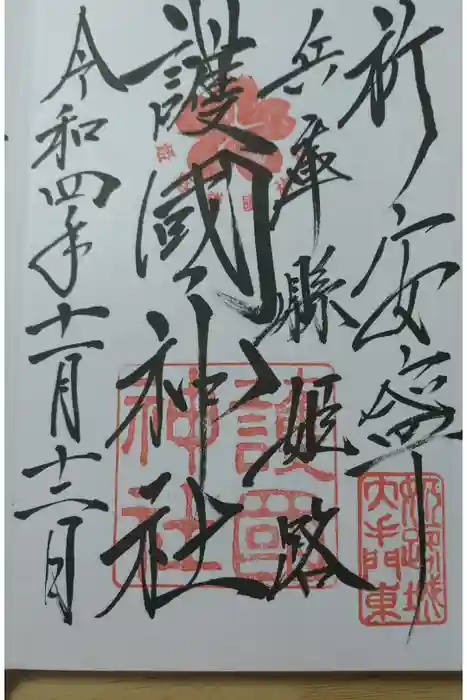 祈安寧
兵庫縣姫路
護國神社
令和四年十一月十三日
護國
神社
姫路城
大手門東